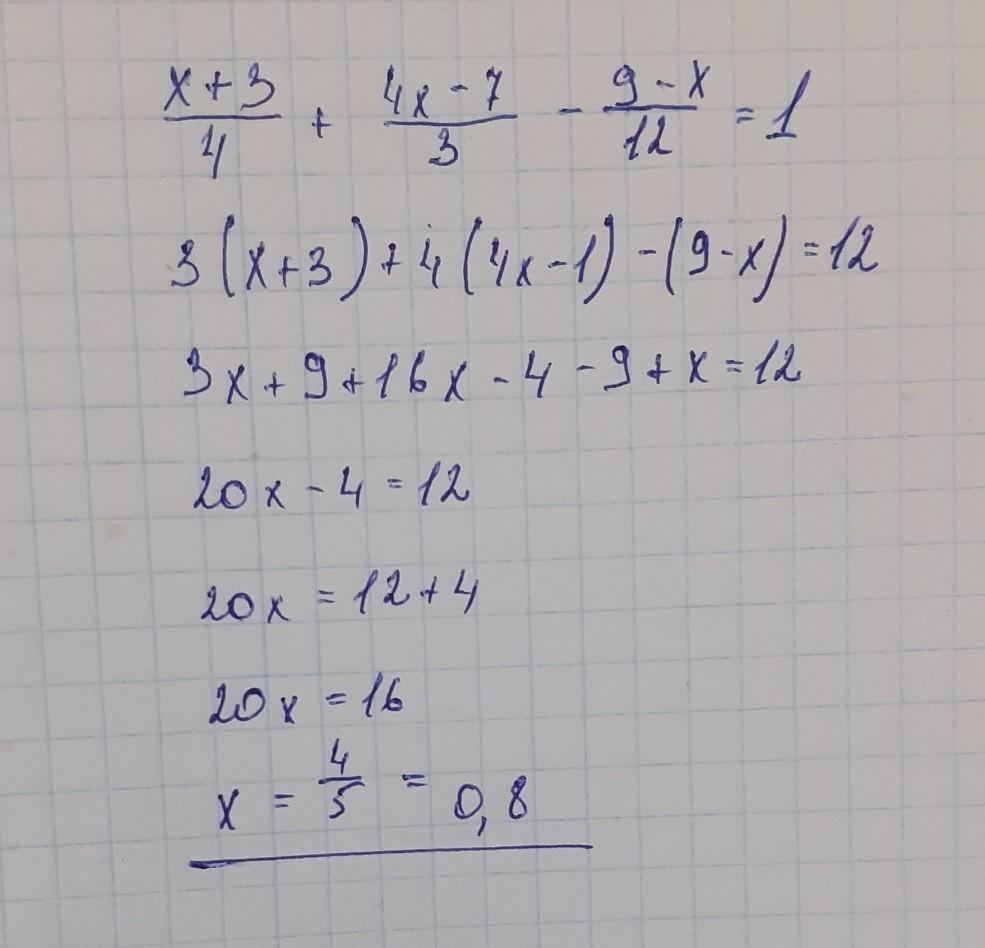 (x+3)/4 + (4x-7)/3 - (9-x)/12 = 1
3(x+3)+4(4x-1)-(9-x)=12
3x+9+16x-4-9+x=12
20x-4=12
20x=12+4
20x=16
x = 4/5 = 0,8